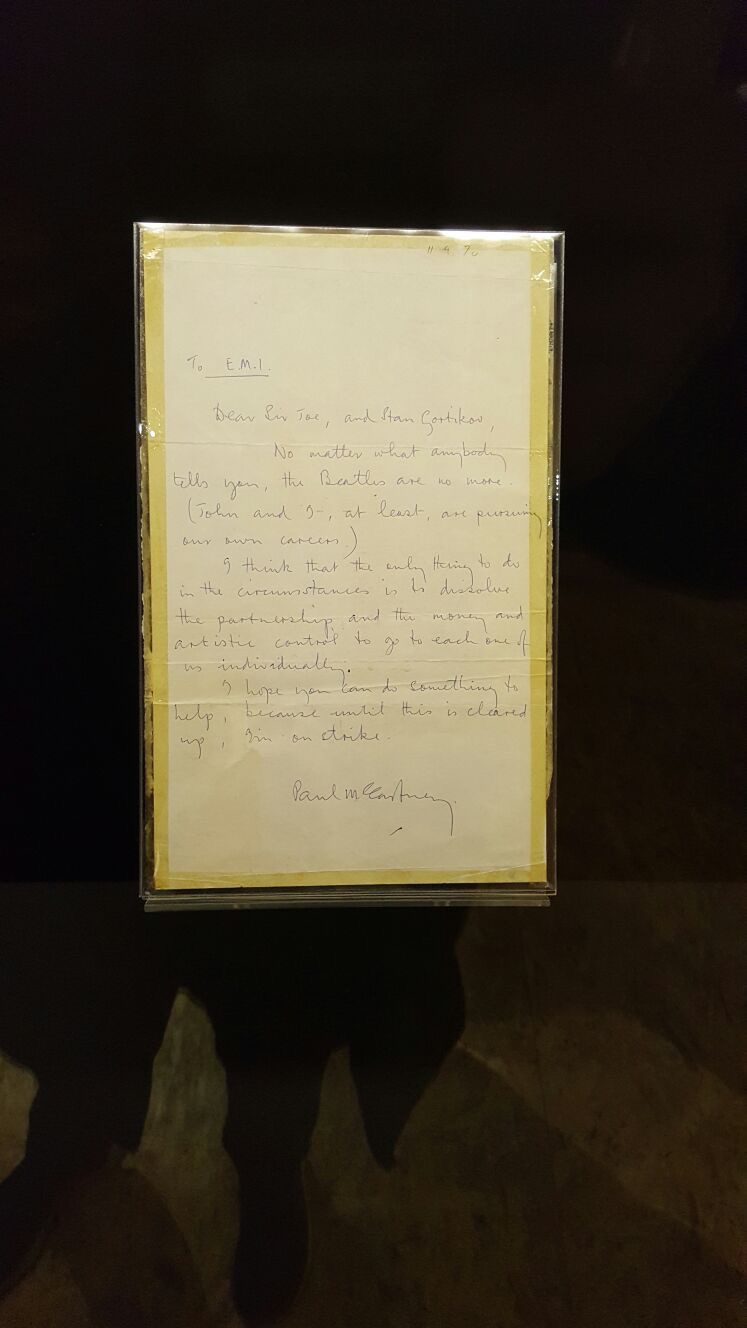 11 9 70
To E.M.I.
Dear Sir Joe, and Stan Gortikov,
No matter what anybody
tells you, the Beatles are no more.
(John and I, at least, are pursuing
our own careers.)
I think that the only thing to do
in the circumstances is to dissolve
the partnership, and the money and
artistic control to go to each one of
us individually.
I hope you can do something to
help, because until this is cleared
up, I'm on strike.
Paul McCartney.